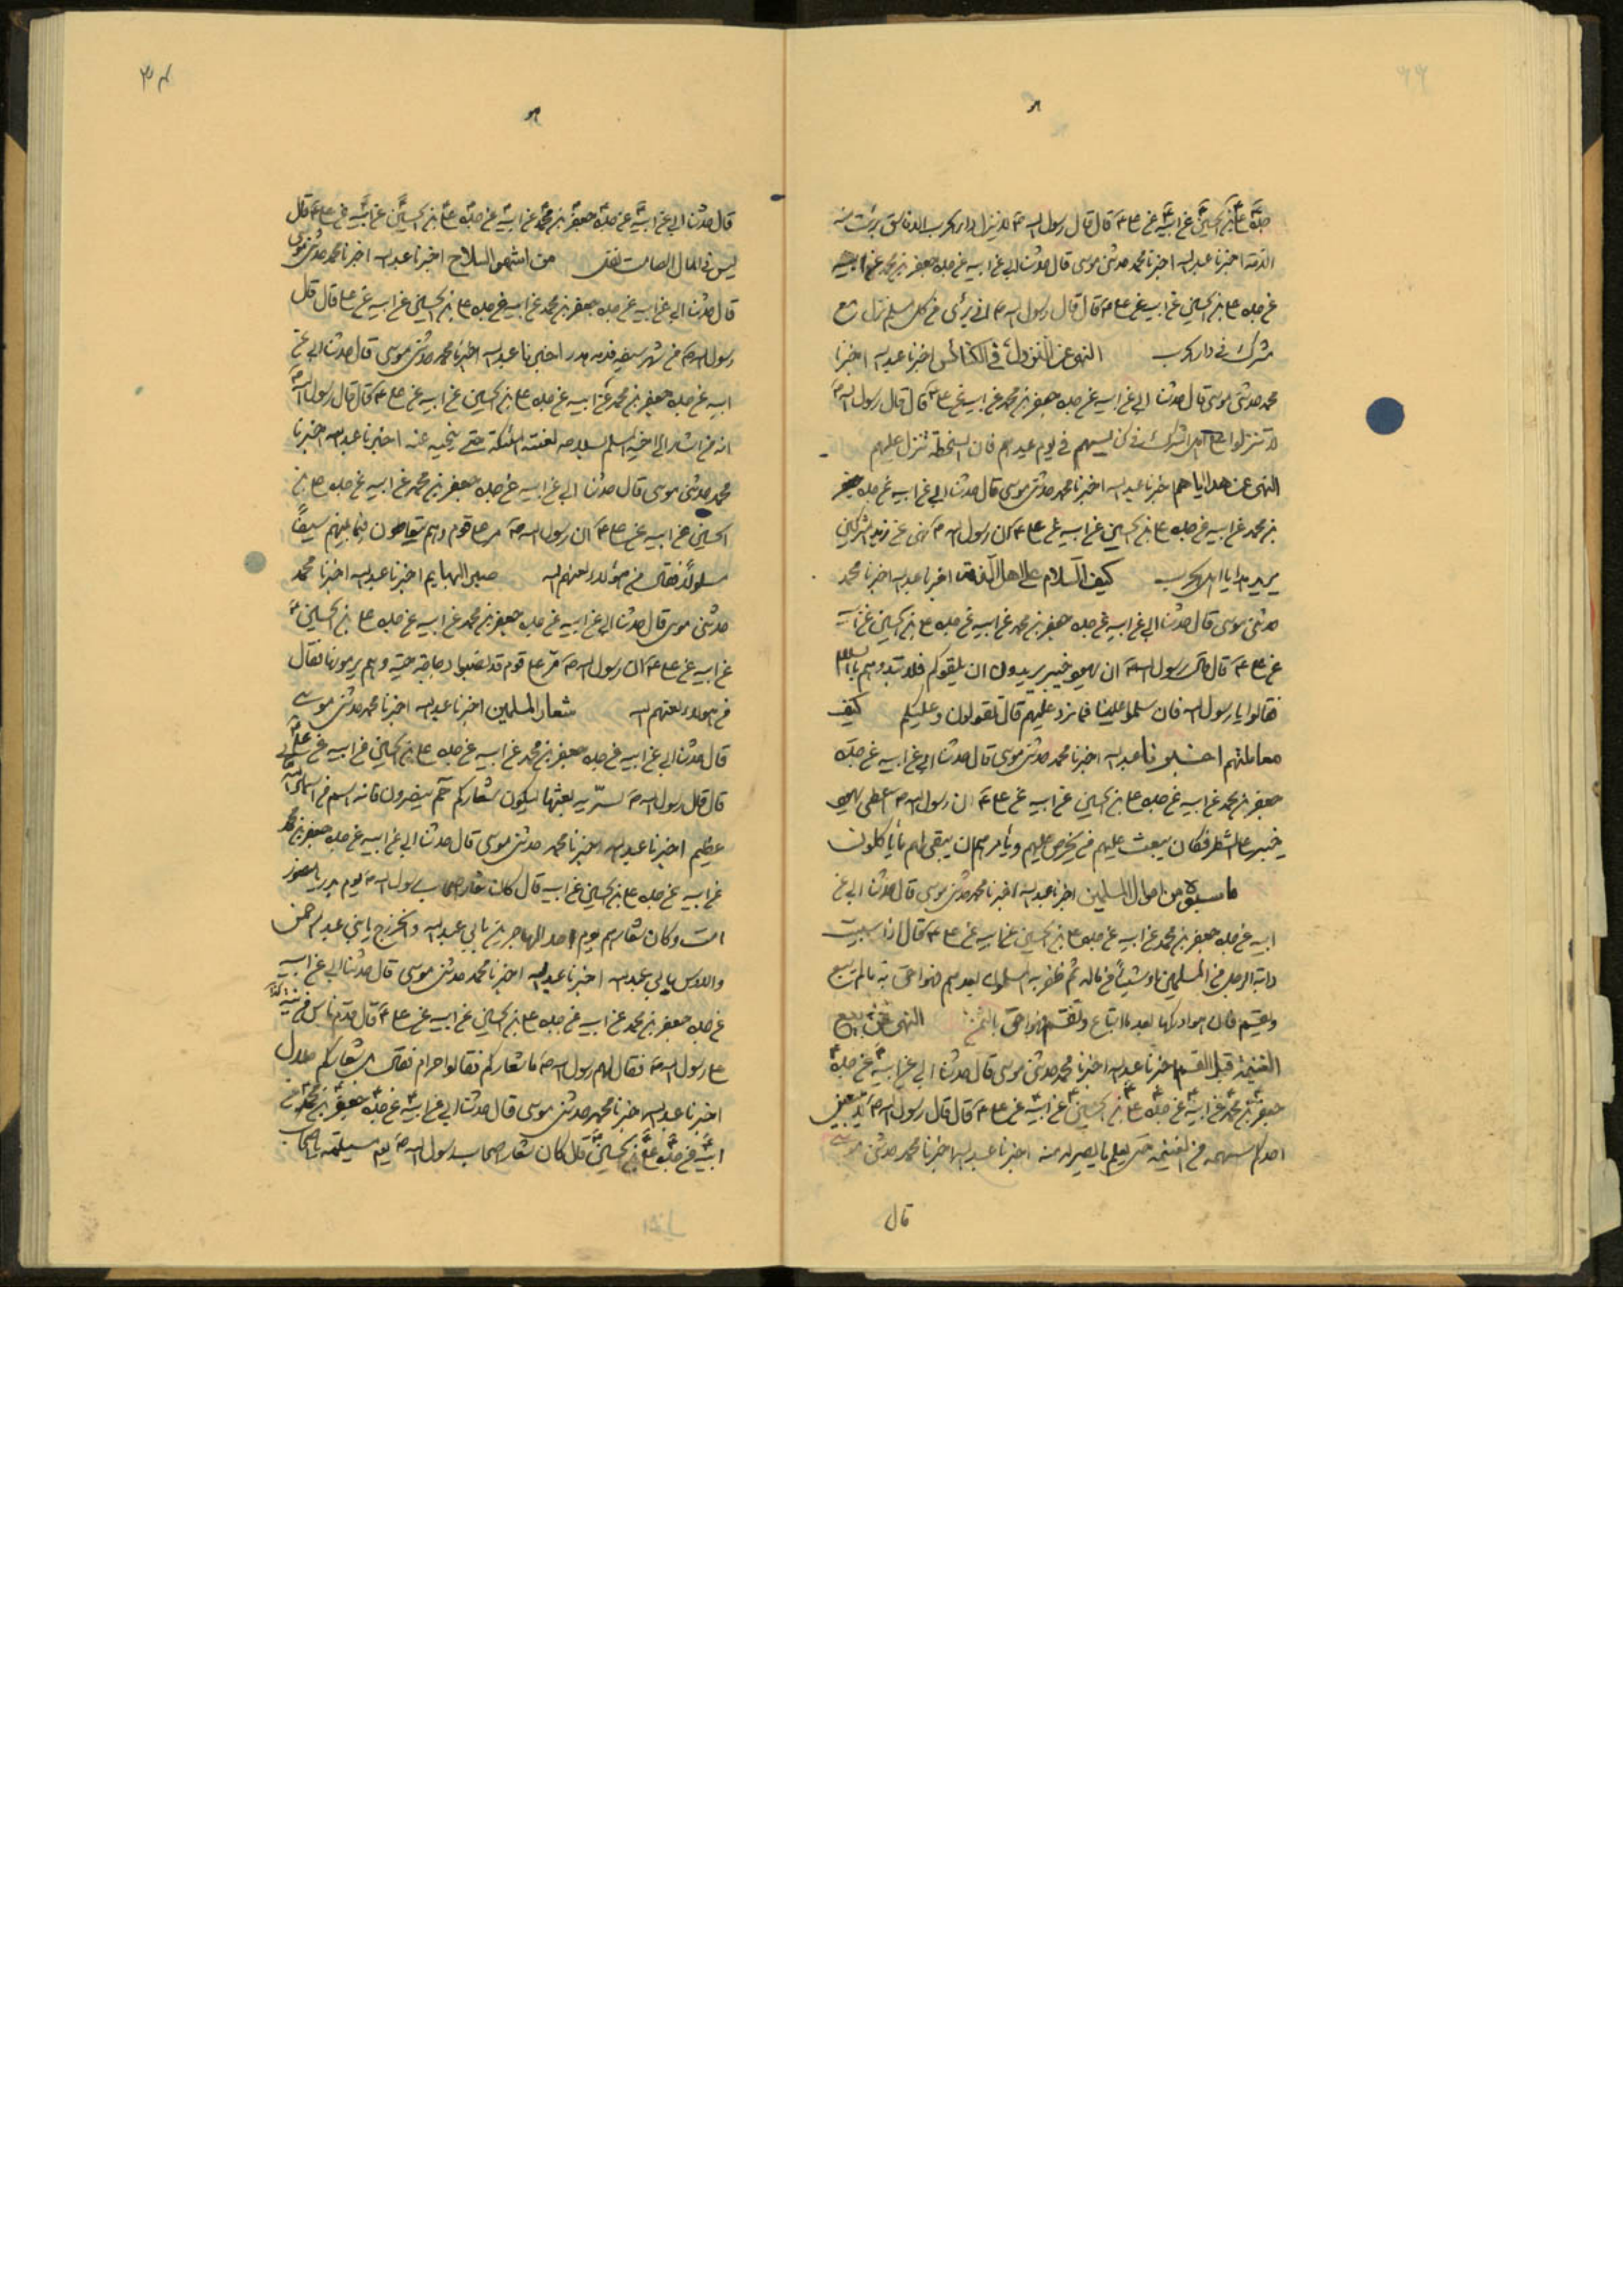 جده علي بن الحسين عن ابيه عن علي ع قال قال رسول الله ص لا ينزل دار الحرب الا فاسق برئت منه
الذمة اخبرنا عبد الله اخبرنا محمد حدثني موسى قال حدثنا ابي عن ابيه عن جده جعفر بن محمد عن ابيه
عن جده علي بن الحسين عن ابيه عن علي ع قال قال رسول الله ص اني برئ من كل مسلم نزل مع
مشرك في دار الحرب النهي عن النزول في الكنائس اخبرنا عبد الله اخبرنا
محمد حدثني موسى قال حدثنا ابي عن ابيه عن جده جعفر بن محمد عن ابيه عن علي ع قال قال رسول الله ص
لا تنزلوا على اهل الشرك في كنايسهم في يوم عيدهم فان السخطة تنزل عليهم
النهي عن هداياهم اخبرنا عبد الله اخبرنا محمد حدثني موسى قال حدثنا ابي عن ابيه عن جده جعفر
بن محمد عن ابيه عن جده علي بن الحسين عن ابيه عن علي ع ان رسول الله ص نهى عن زبد المشركين
يريد هدايا اهل الحرب كيف السلام على اهل الذمة اخبرنا عبد الله اخبرنا محمد
حدثني موسى قال حدثنا ابي عن ابيه عن جده جعفر بن محمد عن ابيه عن جده علي بن الحسين عن ابيه
عن علي ع قال قال رسول الله ص ان يهود خيبر يريدون ان يلقوكم فلا تبدوهم بالسلام
فقالوا يا رسول الله فان سلموا علينا فما نرد عليهم قال تقولون وعليكم كيف
معاملتهم اخبرنا عبد الله اخبرنا محمد حدثني موسى قال حدثنا ابي عن ابيه عن جده
جعفر بن محمد عن ابيه عن جده علي بن الحسين عن ابيه عن علي ع ان رسول الله ص اعطى يهود
خيبر على الشطر فكان يبعث عليهم من يخرص عليهم ويأمرهم ان يبقى لهم ما يأكلون
ما سبوه من اموال المسلمين اخبرنا عبد الله اخبرنا محمد حدثني موسى قال حدثنا ابي عن
ابيه عن جده جعفر بن محمد عن ابيه عن جده علي بن الحسين عن ابيه عن علي ع قال اذا سبيت
دابة الرجل من المسلمين او شيئا من ماله ثم ظفر به المسلمون بعد فهو احق به ما لم يبع
ويقسم فان هو ادركها بعد ما ابتاع وتقسم فهو احق بالثمن النهي عن بيع
الغنيمة قبل القسم اخبرنا عبد الله اخبرنا محمد حدثني موسى قال حدثنا ابي عن ابيه عن جده
جعفر بن محمد عن ابيه عن جده علي بن الحسين عن ابيه عن علي ع قال قال رسول الله ص لا يبيعن
احدكم سهمه من الغنيمة حتى يعلم ما يصير له منه اخبرنا عبد الله اخبرنا محمد حدثني موسى
قال
٣٤
قال حدثنا ابي عن ابيه عن جده جعفر بن محمد عن ابيه عن جده علي بن الحسين عن ابيه عن علي ع قال
ليس في المال الصامت نفل من اشهر السلاح اخبرنا عبد الله اخبرنا محمد حدثني موسى
قال حدثنا ابي عن ابيه عن جده جعفر بن محمد عن ابيه عن جده علي بن الحسين عن ابيه عن علي قال قال
رسول الله ص من شهر سيفه فدمه هدر اخبرنا عبد الله اخبرنا محمد حدثني موسى قال حدثنا ابي عن
ابيه عن جده جعفر بن محمد عن ابيه عن جده علي بن الحسين عن ابيه عن علي ع قال قال رسول الله ص
انه من اشار الى اخيه المسلم بسلاحه لعنته الملئكة حتى ينحيه عنه اخبرنا عبد الله اخبرنا
محمد حدثني موسى قال حدثنا ابي عن ابيه عن جده جعفر بن محمد عن ابيه عن جده علي بن
الحسين عن ابيه عن علي ع ان رسول الله ص مر على قوم وهم يتعاطون فيما بينهم سيفا
مسلولا فقال من هؤلاء لعنهم الله صبر البهايم اخبرنا عبد الله اخبرنا محمد
حدثني موسى قال حدثنا ابي عن ابيه عن جده جعفر بن محمد عن ابيه عن جده علي بن الحسين
عن ابيه عن علي ع ان رسول الله ص مر على قوم قد نصبوا دجاجة حية وهم يرمونها فقال
من هؤلاء لعنهم الله شعار المسلمين اخبرنا عبد الله اخبرنا محمد حدثني موسى
قال حدثنا ابي عن ابيه عن جده جعفر بن محمد عن ابيه عن جده علي بن الحسين عن ابيه عن علي ع
قال قال رسول الله ص لسرية بعثها ليكون شعاركم حم لا ينصرون فانه اسم من اسماء الله تعالى
عظيم اخبرنا عبد الله اخبرنا محمد حدثني موسى قال حدثنا ابي عن ابيه عن جده جعفر بن محمد
عن ابيه عن جده علي بن الحسين عن ابيه قال كان شعار اصحاب رسول الله ص يوم بدر يا منصور
امت وكان شعارهم يوم احد للمهاجرين يا بني عبد الله والخزرج يا بني عبد الرحمن
والاوس يا بني عبد الله اخبرنا عبد الله اخبرنا محمد حدثني موسى قال حدثنا ابي عن ابيه
عن جده جعفر بن محمد عن ابيه عن جده علي بن الحسين عن ابيه عن علي ع قال قدم ناس من مزينة
على رسول الله ص فقال لهم رسول الله ص ما شعاركم فقالوا حرام فقال بل شعاركم حلال
اخبرنا عبد الله اخبرنا محمد حدثني موسى قال حدثنا ابي عن ابيه عن جده جعفر بن محمد عن
ابيه عن جده علي بن الحسين قال كان شعار اصحاب رسول الله ص يوم مسيلمة يا اصحاب